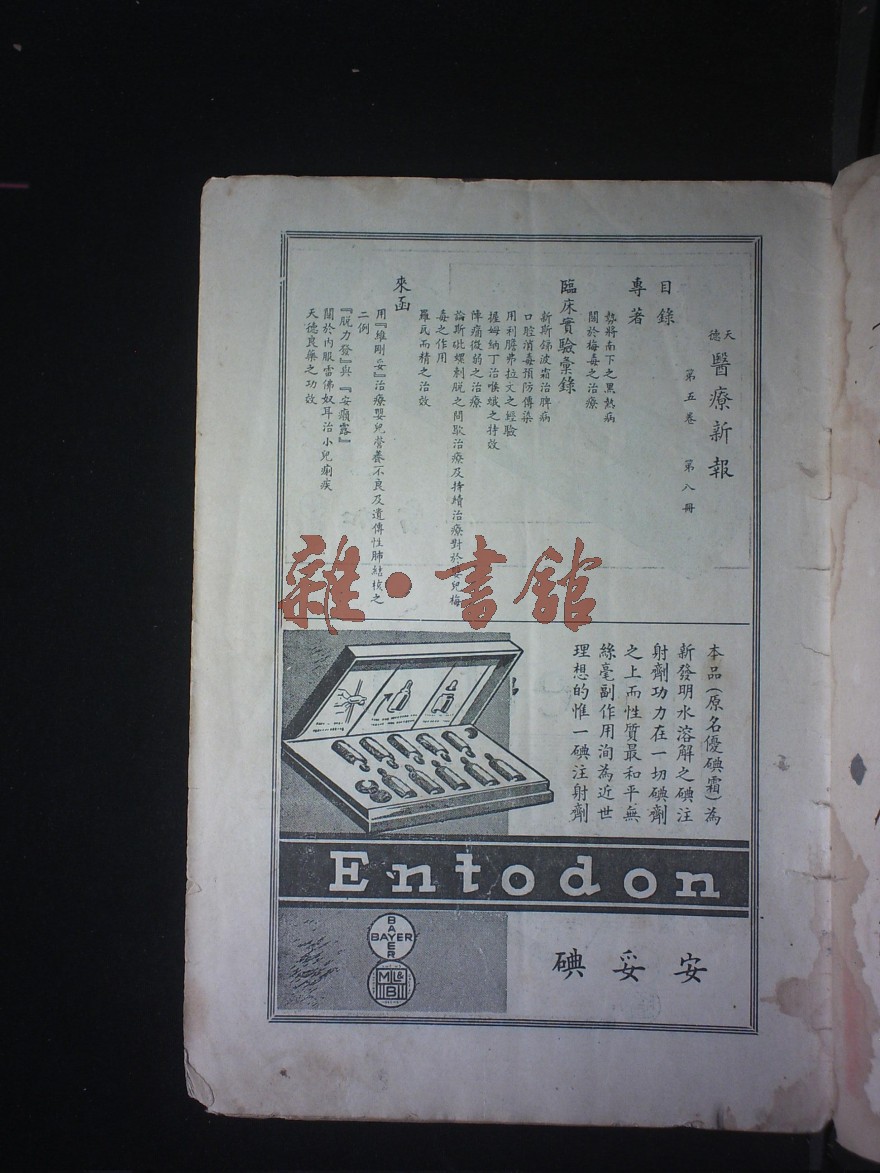 天德 醫療新報
第五卷 第八冊
目錄
專著
勢將南下之黑熱病
關於梅毒之治療
臨床實驗彙錄
新斯銻波霜治脾病
口腔消毒預防傳染
用利膽弗拉文之經驗
握姆納丁治喉蛾之特效
陣痛微弱之治療
論斯砒螺刺脫之間歇治療及持續治療對於嬰兒梅
毒之作用
羅瓦而精之治效
來函
用『維剛妥』治療嬰兒營養不良及遺傳性肺結核之
二例
『脱力發』與『安癪露』
關於內服雷佛奴耳治小兒痢疾
天德良藥之功效
雜·書館
本品(原名優碘霜)為
新發明水溶解之碘注
射劑功力在一切碘劑
之上而性質最和平無
絲毫副作用洵為近世
理想的惟一碘注射劑
Entodon
BAYER
BAYER
ML&B
安妥碘